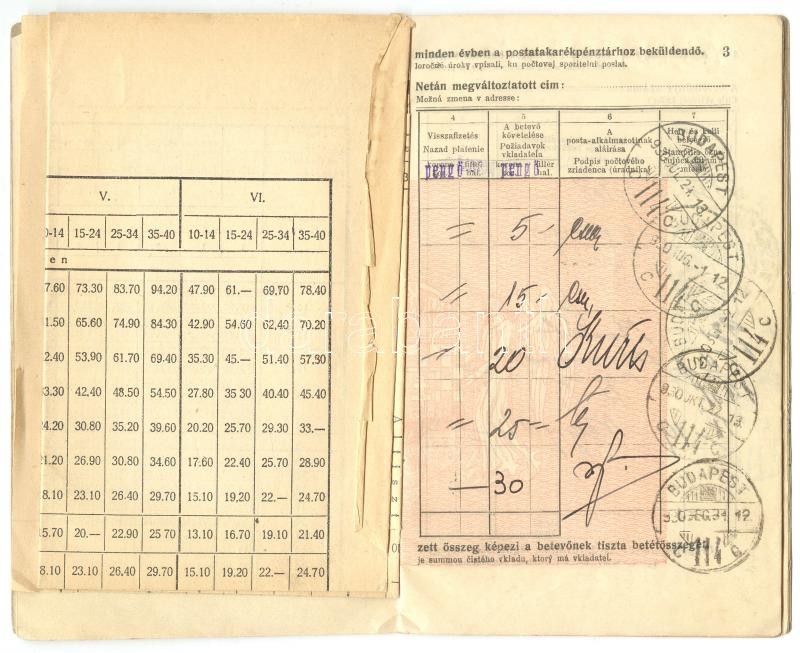 V. VI.
0-14 15-24 25-34 35-40 10-14 15-24 25-34 35-40
en
7.60 73.30 83.70 94.20 47.90 61.— 69.70 78.40
1.50 65.60 74.90 84.30 42.90 54.60 62.40 70.20
2.40 53.90 61.70 69.40 35.30 45.— 51.40 57.90
3.30 42.40 48.50 54.50 27.80 35.30 40.40 45.40
4.20 30.80 35.20 39.60 20.20 25.70 29.30 33.—
1.20 26.90 30.80 34.60 17.60 22.40 25.70 28.90
8.10 23.10 26.40 29.70 15.10 19.20 22.— 24.70
5.70 20.— 22.90 25.70 13.10 16.70 19.10 21.40
8.10 23.10 26.40 29.70 15.10 19.20 22.— 24.70
minden évben a postatakarékpénztárhoz beküldendő. 3
loročne úroky vpísali, ku počtovej sporiteľni poslat.
Netán megváltoztatott cím:
Možná zmena v adresse:
4 5 6 7
Visszafizetés
Nazad platenie
A betevő követelése
Požiadavok vkladatela
A posta-alkalmazottnak aláírása
Podpis počtového zriadenca (úradníka)
pengő pengő
" 5-
" 15-
" 20 Kurts
" 25-
— 30
BUDAPEST
BUDAPEST
930 AUG.-1. 12
114
BUDAPEST
114
BUDAPEST
930 OKT. 22. 13
114
BUDAPEST
12
114
zett összeg képezi a betevőnek tiszta betétösszegét.
je summou čistého vkladu, ktorý má vkladatel.
darabanth